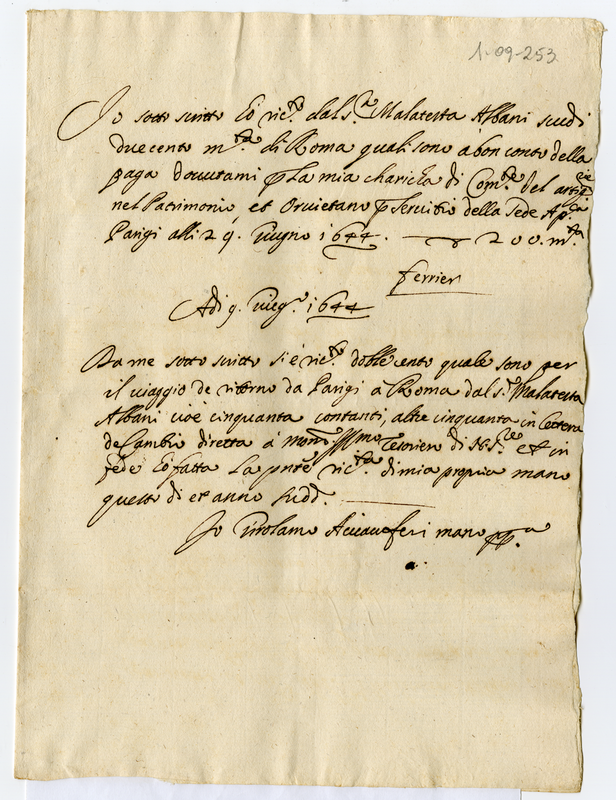 1-09-253
Io sotto scritto hò ric.to dal s.r Malatesta Albani scudi
duecento m.ta di Roma quali sono à bon conto della
paga dovutami p La mia charicha di Com.rio del artig.rie
nel Patrimonio, et Orvietano p servitio della Sede Ap.ca
Parigi alli 29. Giugno 1644. 200. m.ta
ferrier
Adi 9. Giug.o 1644
Da me sotto scritto si è ric.to doble cento quale sono per
il viaggio de ritorno da Parigi à Roma dal s.r Malatesta
Albani cioè cinquanta contanti, altre cinquanta in Lettera
de Cambio diretta à Mons.r Ill.mo Tesoriero di N. S.re et in
fede hò fatta La pnte ric.ta di mia propria mano
questo di et anno sudd.o
Io Girolamo mano pp.a